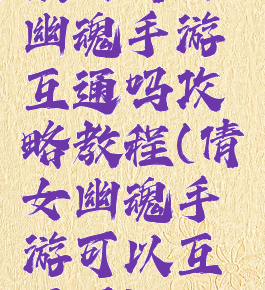 幽魂手游
互通吗攻
略教程(倩
女幽魂手
游可以互